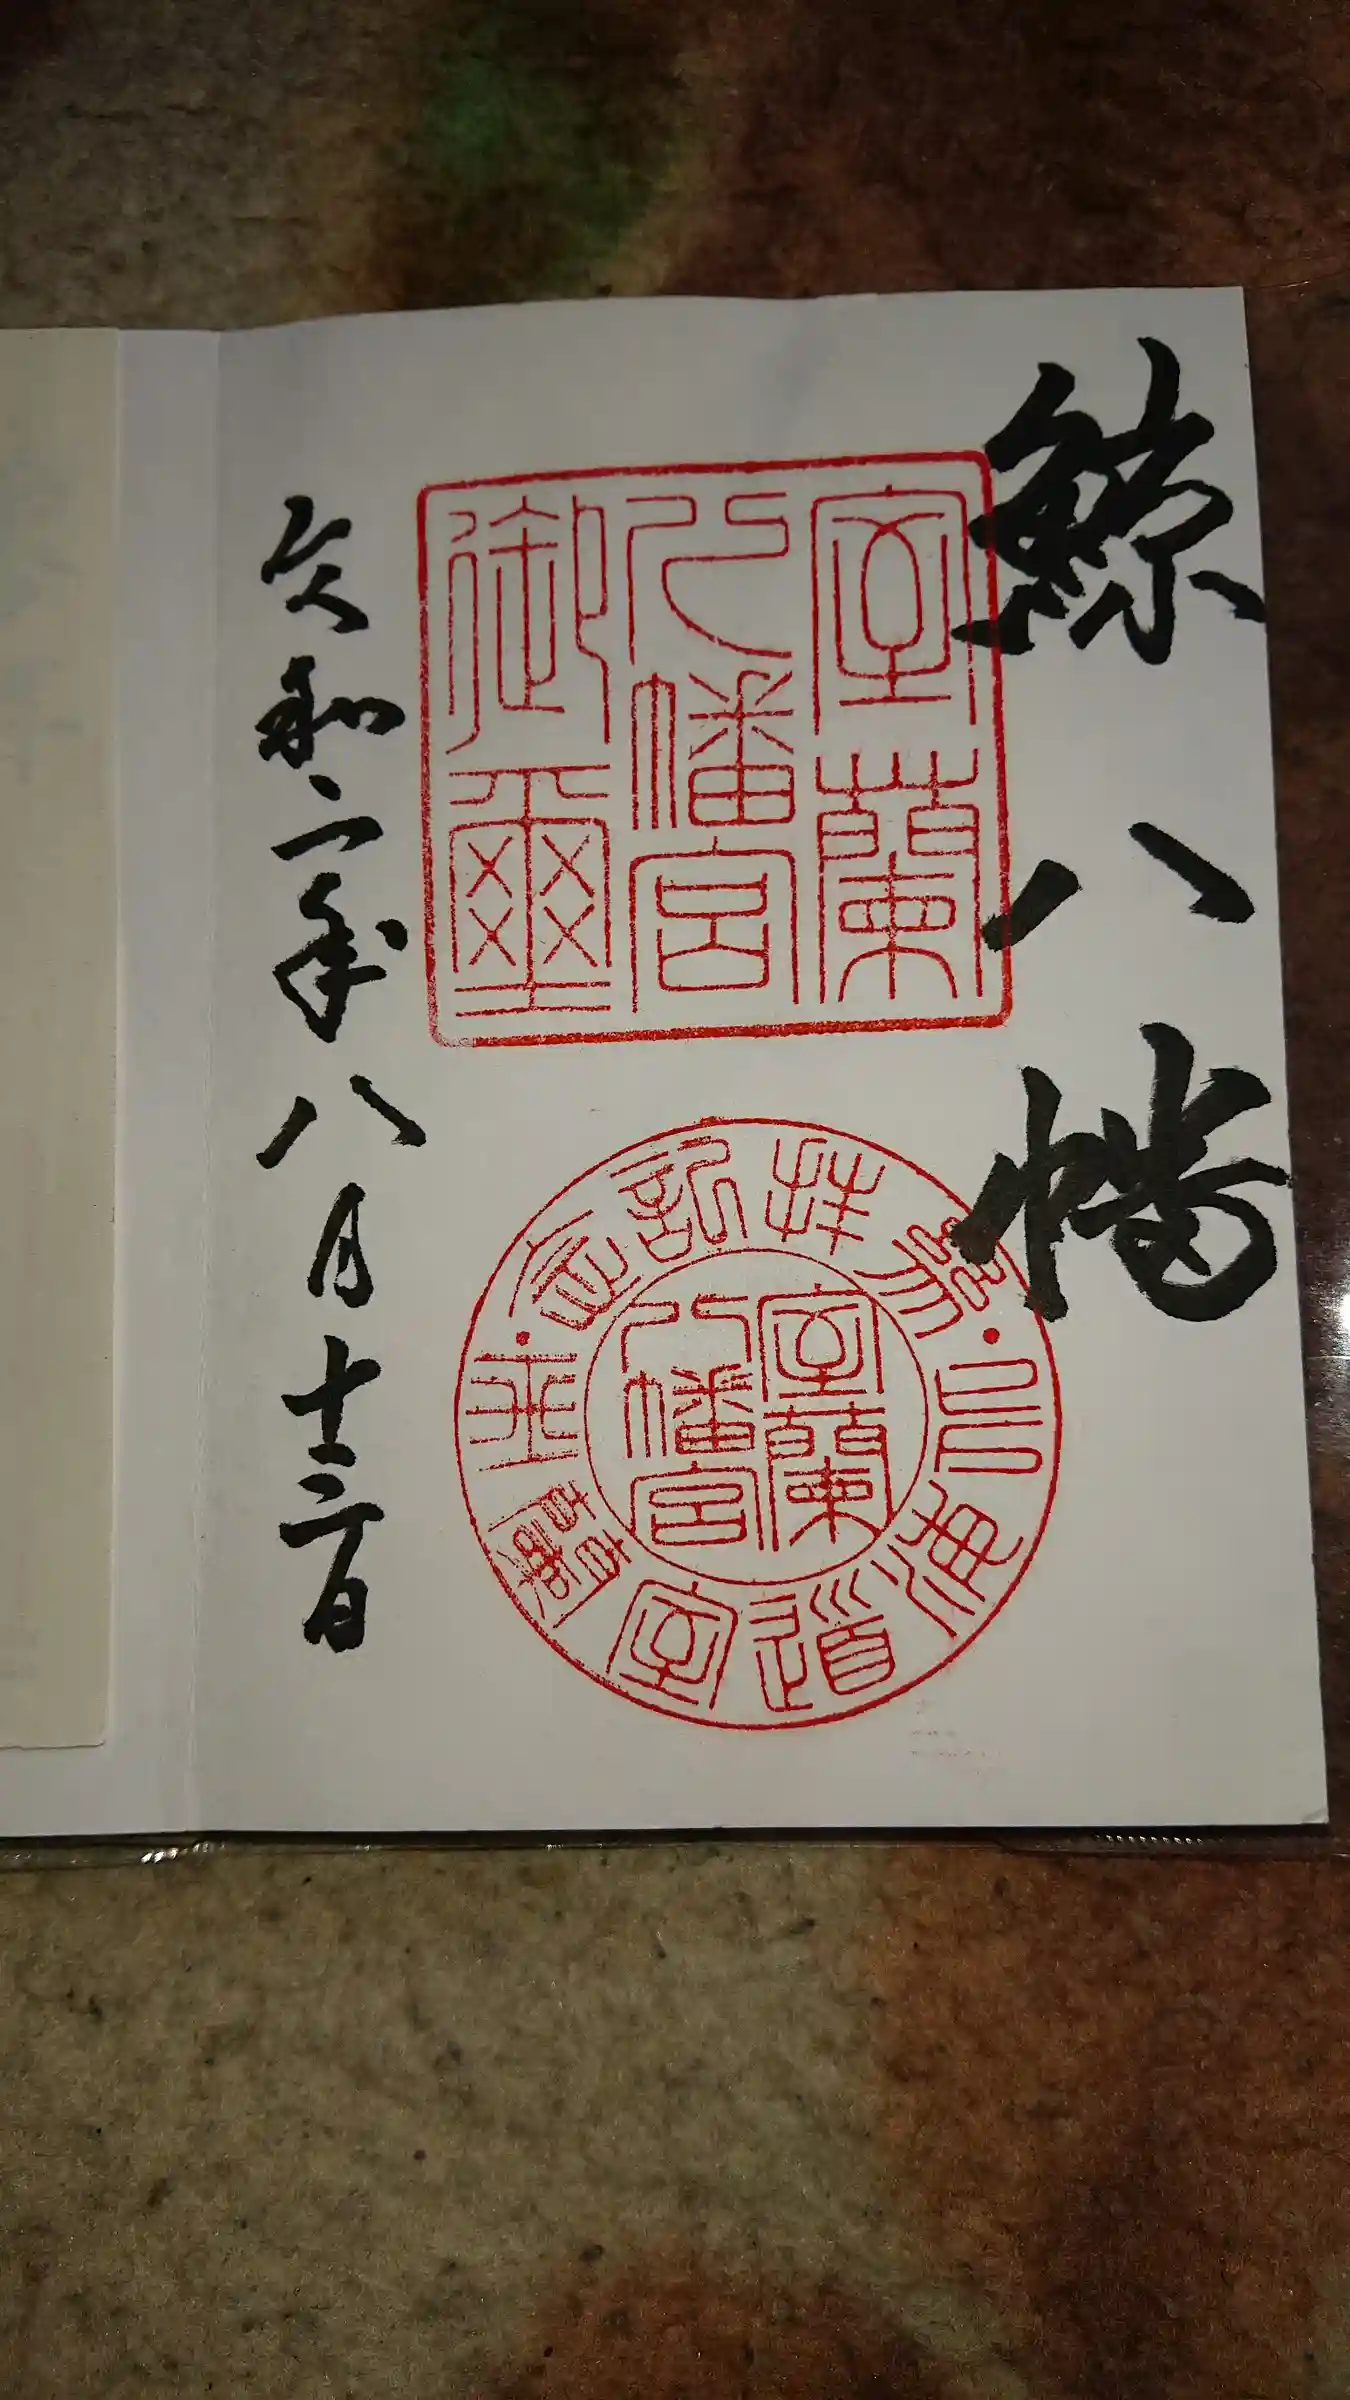 鯨八幡
室蘭
八幡宮
御璽
室蘭
八幡宮
北海道室蘭
参拝記念
令和二年八月十三日